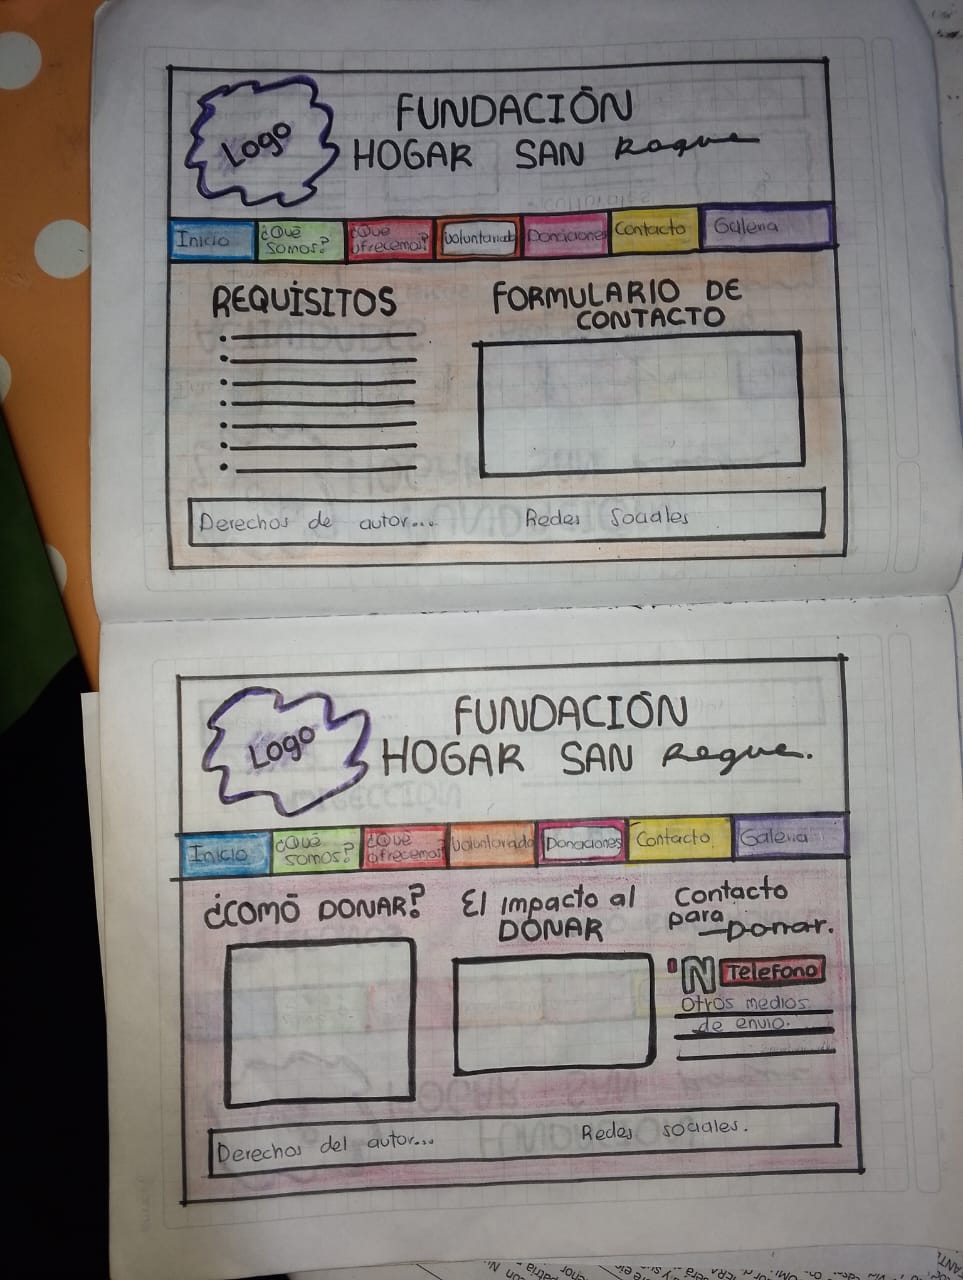 Logo
FUNDACIÓN
HOGAR SAN Roque
Inicio
¿Qué
somos?
¿Que
ofrecemos?
Voluntariado
Donaciones
Contacto
Galeria
REQUISITOS
FORMULARIO DE
CONTACTO
Derechos de autor... Redes Sociales
Logo
FUNDACIÓN
HOGAR SAN Roque.
Inicio
¿Qué
somos?
¿Qué
ofrecemos?
Voluntariado
Donaciones
Contacto
Galeria
¿COMÓ DONAR?
El impacto al
DONAR
Contacto
para donar.
N Telefono
Otros medios
de envio.
Derechos del autor... Redes sociales.